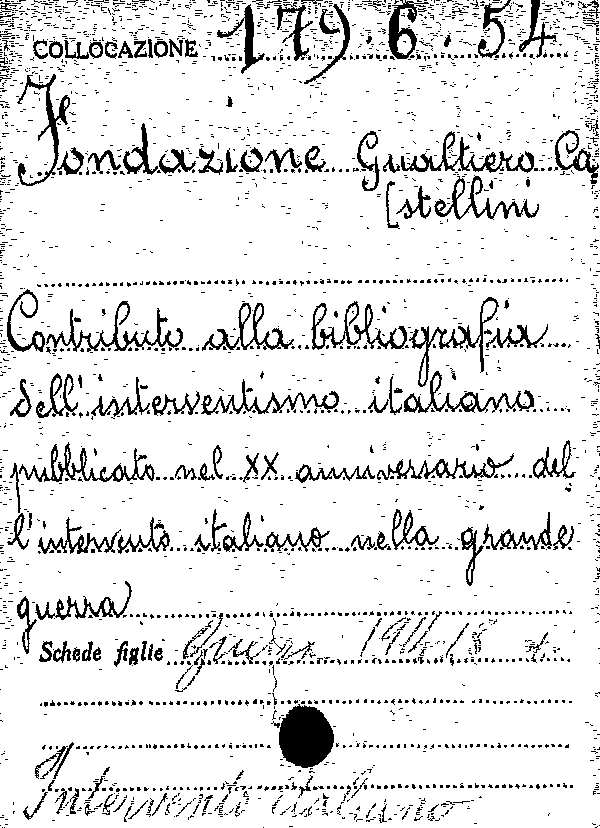 COLLOCAZIONE 179.6.54
Fondazione Gualtiero Ca
[stellini
Contributo alla bibliografia
dell'interventismo italiano
pubblicato nel XX anniversario del
l'intervento italiano nella grande
guerra
Schede figlie Guerra 1914-18
Intervento italiano